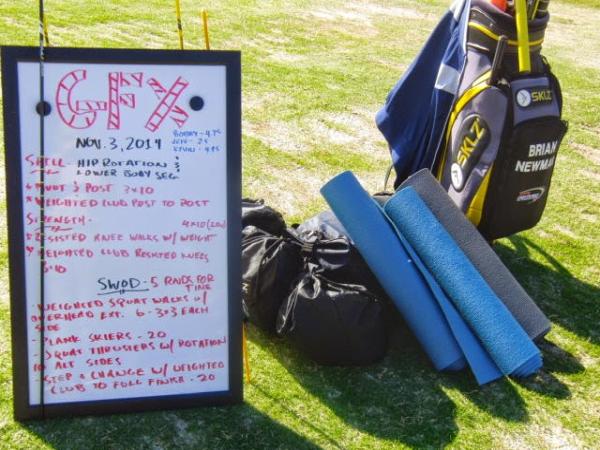 GFX
NOV. 3, 2014
SKILL - HIP ROTATION &
LOWER BODY SEG.
PIVOT & POST 3x10
WEIGHTED CLUB POST TO POST
STRENGTH - 4x10
RESISTED KNEE WALKS W/ WEIGHT
WEIGHTED CLUB RESISTED KNEES
3x10
SWOD - 5 RNDS FOR
TIME
WEIGHTED SQUAT WALKS W/
OVERHEAD EXT. 6 - 3x3 EACH
SIDE
PLANK SKIERS - 20
SQUAT THRUSTERS W/ ROTATION
10 ALT SIDES
STEP & CHANGE W/ WEIGHTED
CLUB TO FULL FINISH - 20
SKLZ
SKLZ
BRIAN
NEWMAN